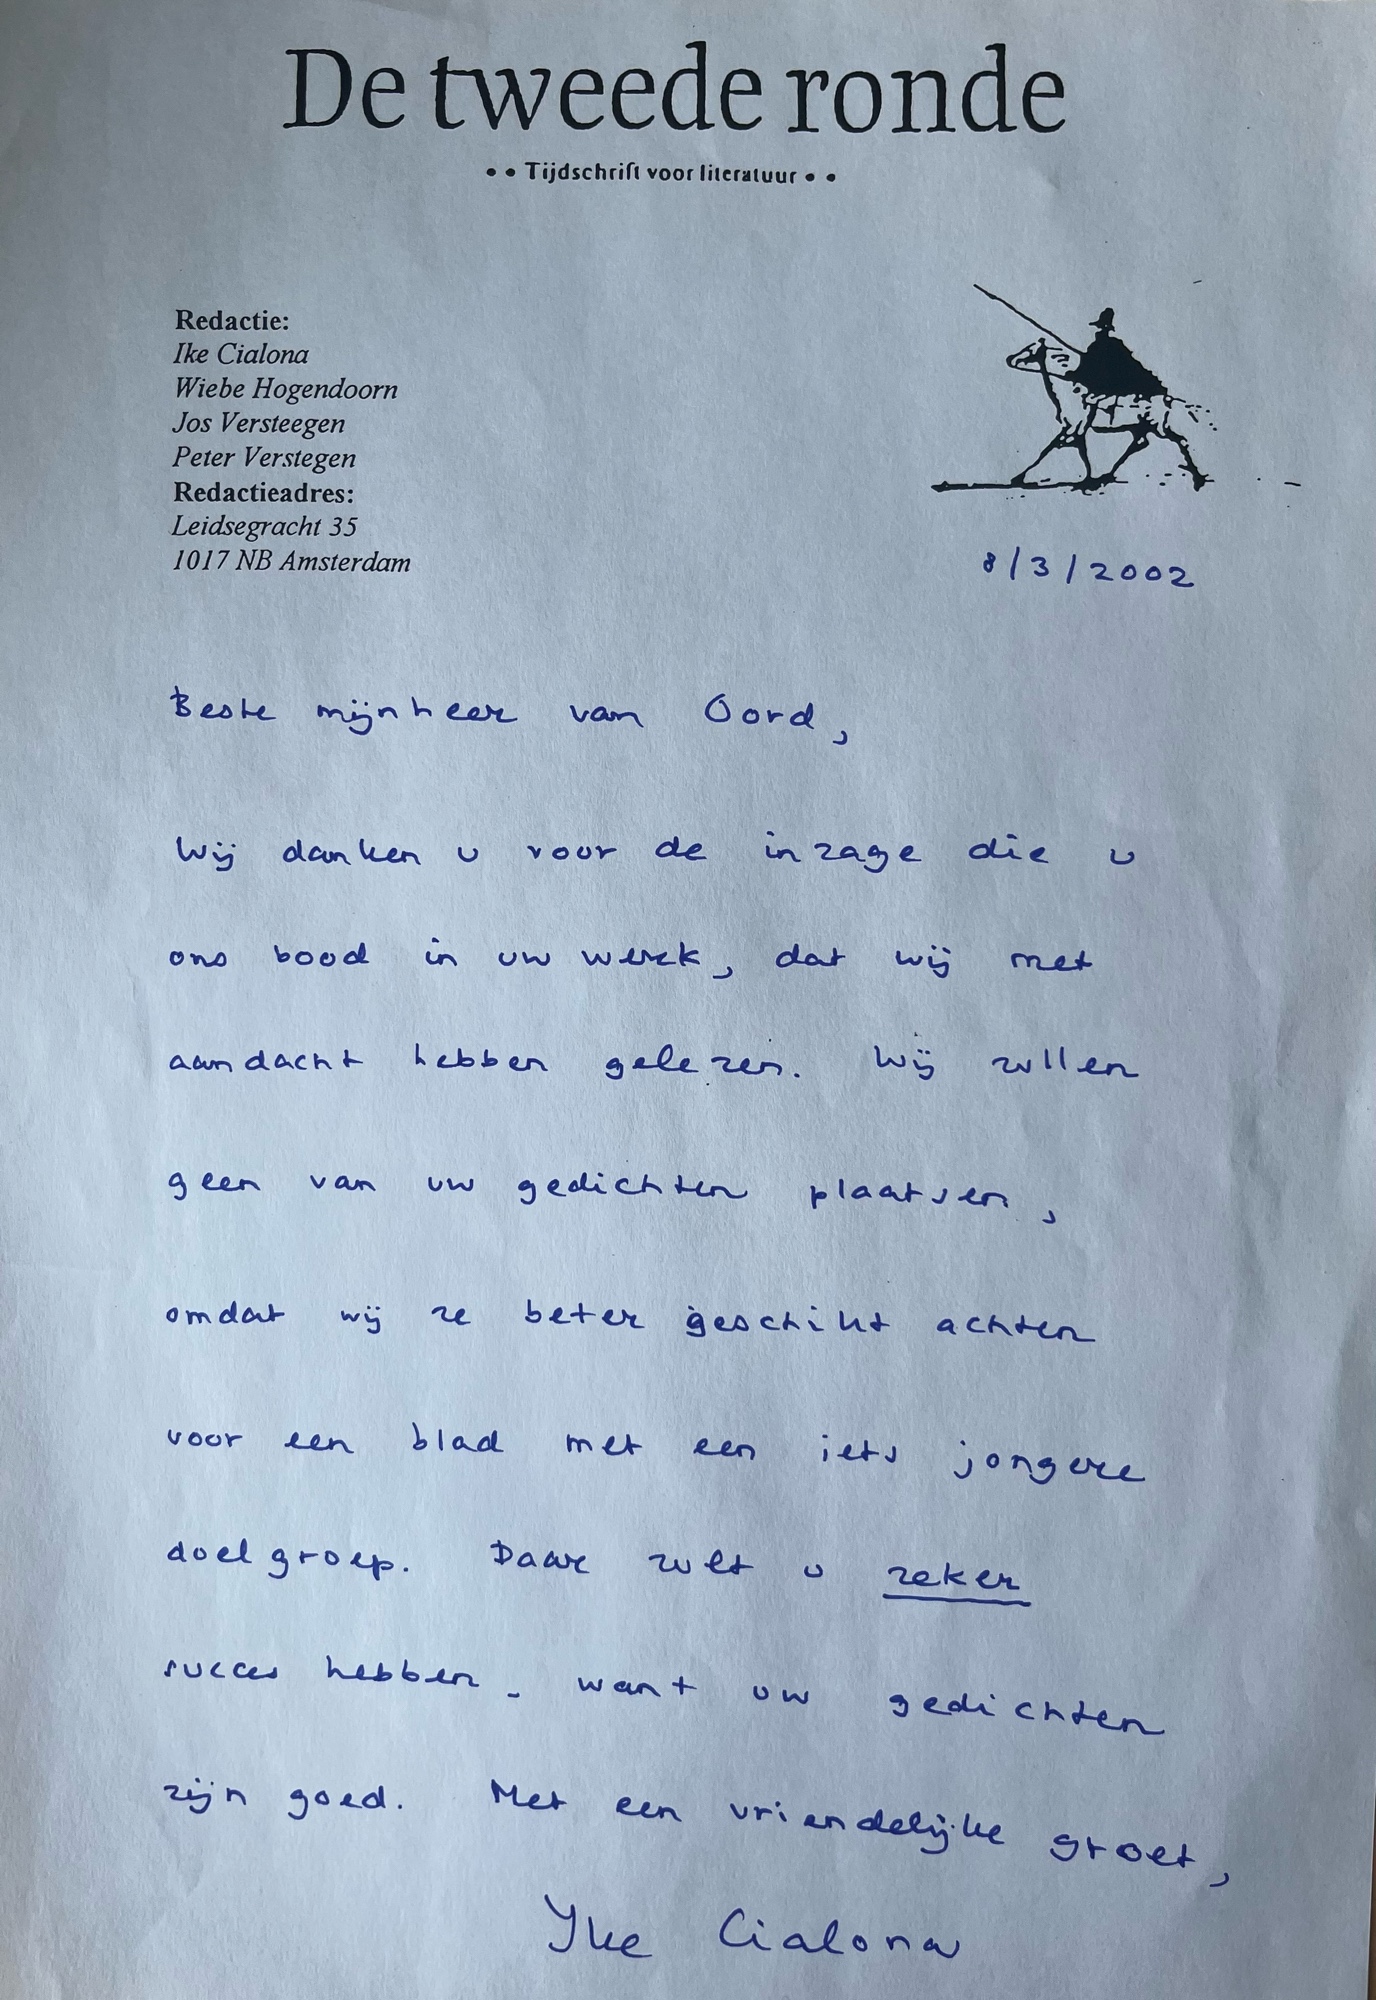 De tweede ronde
• • Tijdschrift voor literatuur • •
Redactie:
Ike Cialona
Wiebe Hogendoorn
Jos Versteegen
Peter Verstegen
Redactieadres:
Leidsegracht 35
1017 NB Amsterdam
8/3/2002
Beste mijnheer van Oord,
Wij danken u voor de inzage die u
ons bood in uw werk, dat wij met
aandacht hebben gelezen. Wij zullen
geen van uw gedichten plaatsen,
omdat wij ze beter geschikt achten
voor een blad met een iets jongere
doelgroep. Daar zult u zeker
succes hebben, want uw gedichten
zijn goed. Met een vriendelijke groet,
Ike Cialona